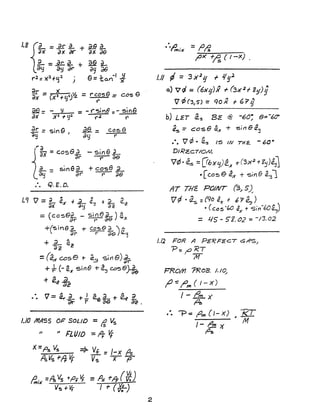 1.8 { ∂/∂x = ∂r/∂x ∂/∂r + ∂θ/∂x ∂/∂θ
∂/∂y = ∂r/∂y ∂/∂r + ∂θ/∂y ∂/∂θ
r² = x² + y² ; θ = tan⁻¹ y/x
∂r/∂x = x/(x²+y²)^½ = r cos θ / r = cos θ
∂θ/∂x = - y/(x²+y²) = - r sin θ / r² = - sin θ / r
∂r/∂y = sin θ , ∂θ/∂y = cos θ / r
{ ∂/∂x = cos θ ∂/∂r - sin θ / r ∂/∂θ
∂/∂y = sin θ ∂/∂r + cos θ / r ∂/∂θ
∴ Q.E.D.
1.9 ∇ = ∂/∂x êx + ∂/∂y êy + ∂/∂z êz
= (cos θ ∂/∂r - sin θ / r ∂/∂θ) êx
+ (sin θ ∂/∂r + cos θ / r ∂/∂θ) êy
+ ∂/∂z êz
= (êx cos θ + êy sin θ) ∂/∂r
+ 1/r (-êx sin θ + êy cos θ) ∂/∂θ
+ êz ∂/∂z
∴ ∇ = êr ∂/∂r + 1/r êθ ∂/∂θ + êz ∂/∂z .
1.10 MASS OF SOLID = ρs Vs
" " FLUID = ρf Vf
x = ρs Vs / (ρs Vs + ρf Vf) ⇒ Vf/Vs = (1-x)/x ρs/ρf
ρmix = (ρs Vs + ρf Vf)/(Vs + Vf) = (ρs + ρf (Vf/Vs))/(1 + (Vf/Vs))
∴ ρmix = ρs ρf / (ρf x + ρs (1-x)) .
1.11 φ = 3x²y + 4y²
a) ∇φ = (6xy) î + (3x² + 8y) ĵ
∇φ(3,5) = 90 î + 67 ĵ
b) LET ês BE @ -60°, θ = -60°
ês = cos θ êx + sin θ êy
∴ ∇φ · ês IS IN THE -60°
DIRECTION.
∇φ · ês = [(6xy) êx + (3x² + 8y) êy]
· [cos θ êx + sin θ êy]
AT THE POINT (3,5),
∇φ · ês = (90 êx + 67 êy)
· (cos -60 êx + sin -60 êy)
= 45 - 58.02 = -13.02
1.12 FOR A PERFECT GAS,
P = ρ RT/M
FROM PROB. 1.10,